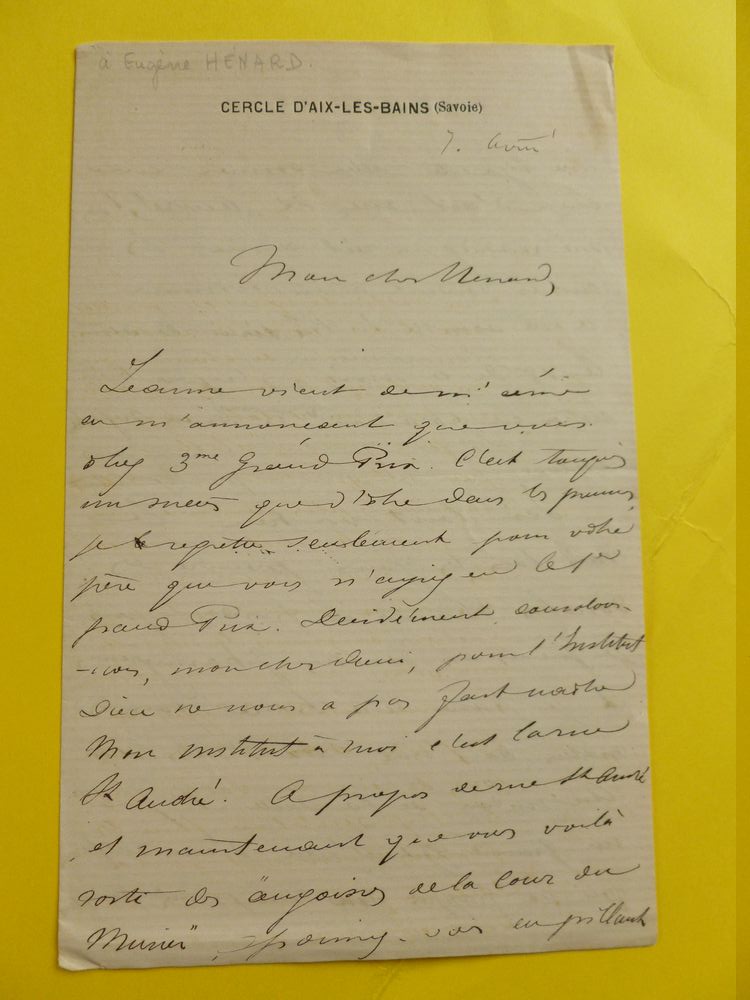 à Eugène HÉNARD.
CERCLE D'AIX-LES-BAINS (Savoie)
7. avril
Mon cher Henard,
Jeanne vient de m'écrire
en m'annoncent que vous
êtes 3me Grand Prix. C'est toujours
un succès que d'être dans les premiers
je regrette seulement pour votre
père que vous n'ayez eu le 1er
grand Prix. Décidément consolons-
-nous, mon cher ami, pour l'Institut
Dieu ne nous a pas fait naître
Mon institut à moi c'est la rue
St André. A propos de rue St André
et maintenant que vous voilà
sorti des "angoisses de la Cour du
Murier" vous en